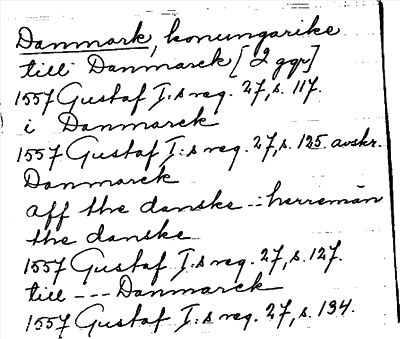 Danmark, konungarike
till Danmarck [2 ggr]
1557 Gustaf I:s reg. 27, s. 117.
i Danmarck
1557 Gustaf I:s reg. 27, s. 125 avskr.
Danmarck
aff the danske --- herremän
the danske
1557 Gustaf I:s reg. 27, s. 127.
till --- Danmarck
1557 Gustaf I:s reg. 27, s. 134.